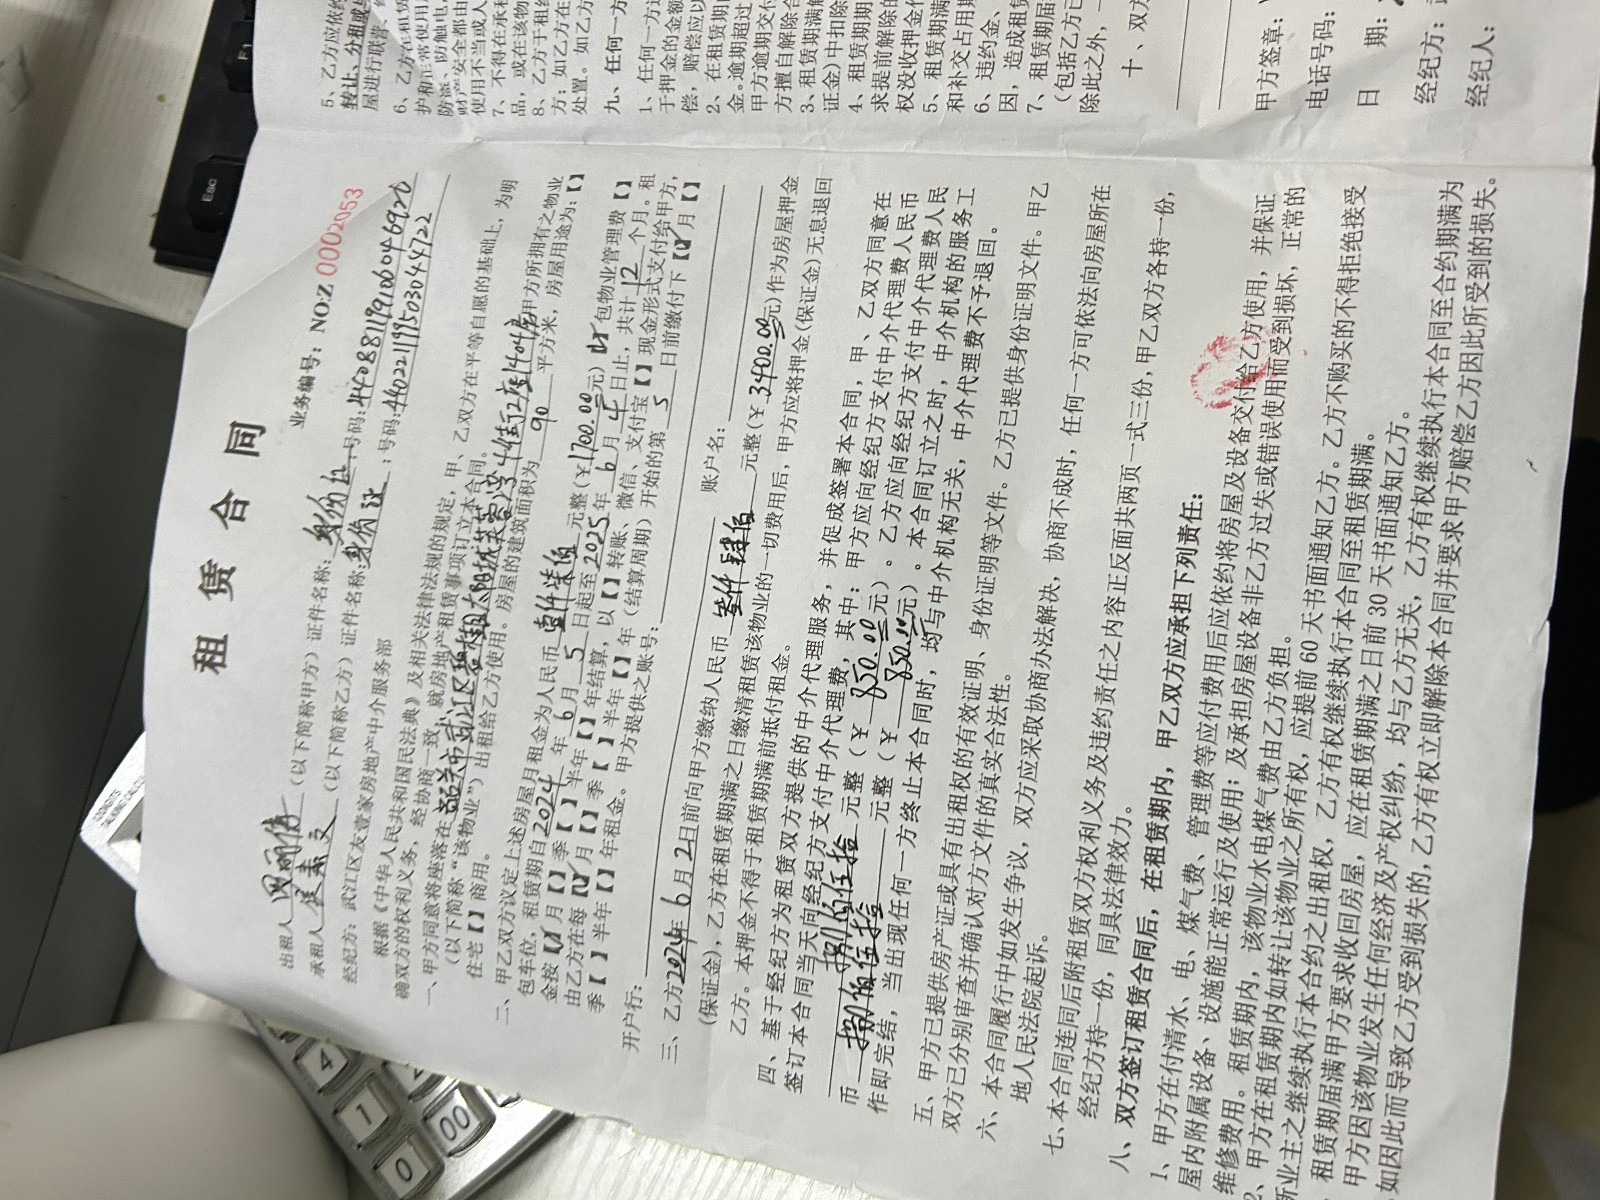 租赁合同
业务编号：NO:Z 0002053
出租人 （以下简称甲方）证件名称：身份证 :号码:
承租人 （以下简称乙方）证件名称：身份证 :号码:440221199503044722
经纪方：武江区友壹家房地产中介服务部
根据《中华人民共和国民法典》及相关法律法规的规定，甲、乙双方在平等自愿的基础上，为明
确双方的权利义务，经协商一致，就房地产租赁事项订立本合同。
一、甲方同意将座落在 韶关市武江区 甲方所拥有之物业
（以下简称“该物业”）出租给乙方使用。房屋的建筑面积为 90 平方米，房屋用途为：【】
住宅【】商用。
二、甲乙双方议定上述房屋月租金为人民币 壹仟柒佰 元整（￥1700.00元） 包物业管理费【】
包车位，租赁期自2024年6月5日起至2025年6月4日止，共计12个月。租
金按【✓】月【】季【】半年【】年结算，以【】转账、微信、支付宝【】现金形式支付给甲方，
由乙方在每【✓】月【】季【】半年【】年（结算周期）开始的第 5 日前缴付下【✓】月【】
季【】半年【】年租金。甲方提供之账号：
开户行： 账户名：
三、乙方2024年6月2日前向甲方缴纳人民币 叁仟肆佰 元整（￥3400.00元）作为房屋押金
（保证金），乙方在租赁期满之日缴清租赁该物业的一切费用后，甲方应将押金（保证金）无息退回
乙方。本押金不得于租赁期满前抵付租金。
四、基于经纪方为租赁双方提供的中介代理服务，并促成签署本合同，甲、乙双方同意在
签订本合同当天向经纪方支付中介代理费，其中：甲方应向经纪方支付中介代理费人民币
捌佰伍拾 元整（￥850.00元）。乙方应向经纪方支付中介代理费人民
币 捌佰伍拾 元整（￥850.00元）。本合同订立之时，中介机构的服务工
作即完结，当出现任何一方终止本合同时，均与中介机构无关，中介代理费不予退回。
五、甲方已提供房产证或具有出租权的有效证明、身份证明等文件。乙方已提供身份证明文件。甲乙
双方已分别审查并确认对方文件的真实合法性。
六、本合同履行中如发生争议，双方应采取协商办法解决，协商不成时，任何一方可依法向房屋所在
地人民法院起诉。
七、本合同连同后附租赁双方权利义务及违约责任之内容正反面共两页一式三份，甲乙双方各持一份，
经纪方持一份，同具法律效力。
八、双方签订租赁合同后，在租赁期内，甲乙双方应承担下列责任：
1、甲方在付清水、电、煤气费、管理费等应付费用后应依约将房屋及设备交付给乙方使用，并保证
屋内附属设备、设施能正常运行及使用；及承担房屋设备非乙方过失或错误使用而受到损坏，正常的
维修费用。租赁期内，该物业水电煤气费由乙方负担。
2、甲方在租赁期内如转让该物业之所有权，应提前60天书面通知乙方。乙方不购买的不得拒绝接受
新业主之继续执行本合约之出租权，乙方有权继续执行本合同至租赁期满。
租赁期届满甲方要求收回房屋，应在租赁期满之日前30天书面通知乙方。
甲方因该物业发生任何经济及产权纠纷，均与乙方无关，乙方有权继续执行本合同至合约期满为
如因此而导致乙方受到损失的，乙方有权立即解除本合同并要求甲方赔偿乙方因此所受到的损失。
5、乙方应依约
转让、分租或
屋进行联营、
6、乙方在租赁
护和正常使用
防盗、防触电，
财产安全都由
使用不当或人
7、不得在承租
品，或在该物
8、乙方于租
方；如乙方在
处置。如乙方
九、任何一方
1、任何一方
于押金的金额
偿，赔偿应以
2、在租赁期
金。逾期超过
甲方逾期交付
方擅自解除合
3、租赁期满
证金）中扣除
4、租赁期期
求提前解除的
权没收押金作
5、租赁期满
和补交占用期
6、违约金、
因，造成租赁
7、租赁期届
（包括乙方已
除此之外，
十、双方
甲方签章：
电话号码：
日 期：
经纪方：
经纪人：
Esc
F1
4
1
0
00